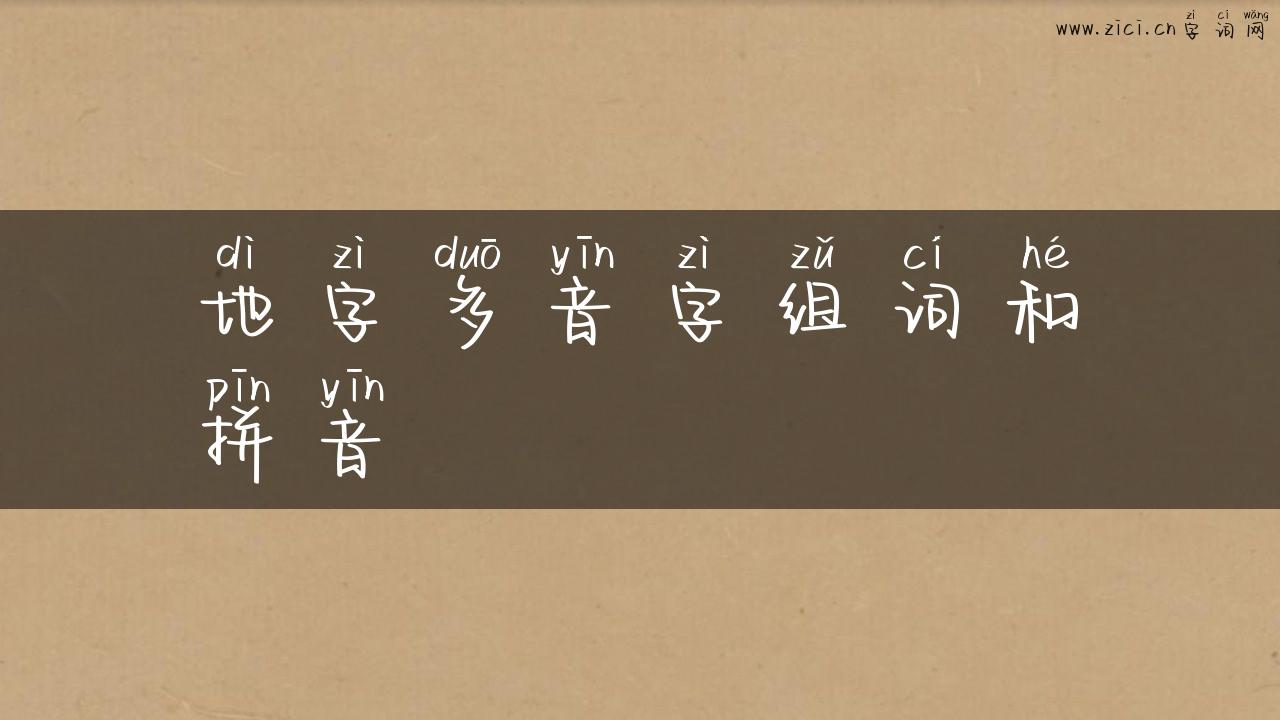 zì cí wǎng
www.zici.cn 字词网
dì zì duō yīn zì zǔ cí hé
地字多音字组词和
pīn yīn
拼音